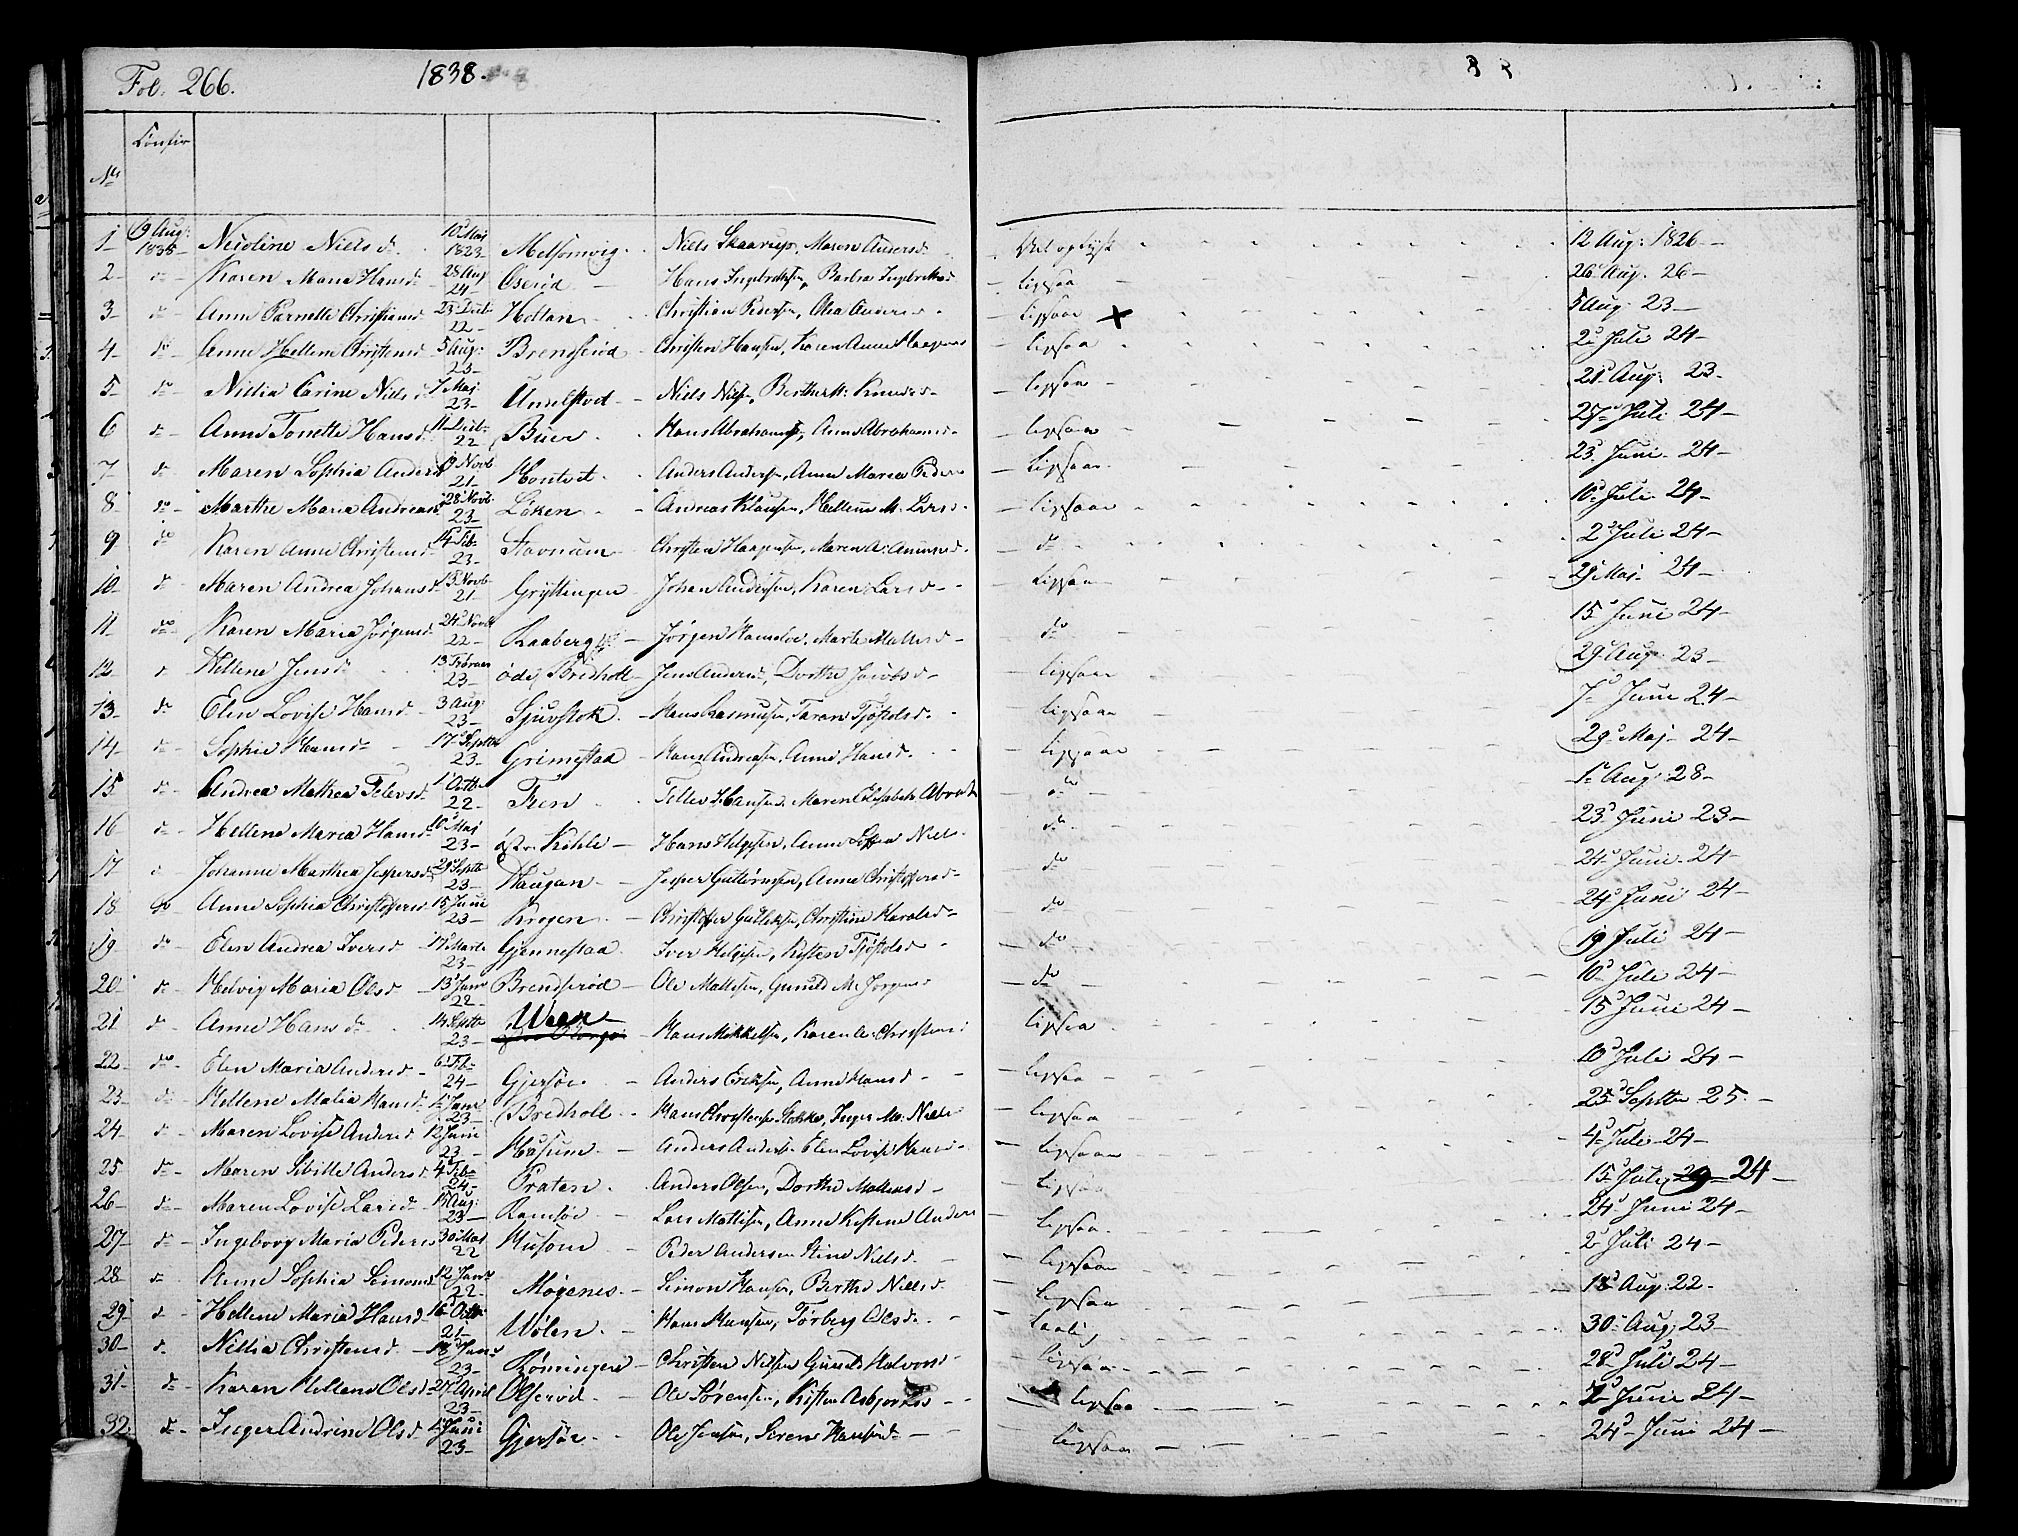 Fol. 266. 1838.
No Confir
1 19 Aug: 1838 Nicoline Nielsd. 10 Maj 1823 Melsomvig Niels Skaarup, Maren Andersd. Vel oplyst 12 Aug: 1826
2 do Karen Maria Hansd. 28 Aug 24 Oserød Hans Ingebretsen, ligesaa 26 Aug. 26
3 do Anne Parnelle Christiansd. 23 Decb 22 Holtan Christian Pedersen, Olea Andersd. ligesaa + 5 Aug: 23
4 do Anne Hellene Christensd. 5 Aug: 23 Brendserød Christen Hansen, Karen Anne Haagensd ligesaa 2 Juli 24
5 do Nillia Carine Nielsd. 7 Maj 23 Unnelstvet Niels Niels., Berthe M: Knudsd. ligesaa 21 Aug: 23
6 do Anne Tonette Hansd. 11 Decb 22 Buer Hans Abrahams., Anne Abrahamsd. ligesaa 27 Juli 24
7 do Maren Sophia Andersd 19 Novb 21 Hontvet Anders Andersen, Anne Maria Peders ligesaa 23 Juni 24
8 do Marthe Maria Andreasd 28 Novb. 23 Løken Andreas Klausen, Hellene M. Larsd. ligesaa 10 Juli 24
9 do Karen Anne Christensd. 14 Feb: 23 Stavnum Christen Haagensen, Maren A: Amundsd. do 2 Juli 24
10 do Maren Andrea Johansd. 13 Novb 21 Gryttingen Johan Andersen, Karen Larsd. ligesaa 29 Maj 24
11 do Karen Maria Jørgensd 24 Novb 22 Raaberg Jørgen Hansen, Marte Mathisd. do 15 Juni 24
12 do Hellene Jensd. 13 Februar 23 Bredholt Jens Anders., Dorthe Jacobsd. ligesaa 29 Aug: 23
13 do Elen Lovise Hansd. 3 Aug: 23 Sjuvstok Hans Rasmusen, Taran Tjøstolsd. ligesaa 7 Juni 24
14 do Sophie Hansd. 17 Septbr 23 Grimestad Hans Andreasen, Anne Hansd. ligesaa 29 Maj 24
15 do Andrea Mathea Tellevsd. 1 Octb 22 Fren Tellev Hansen, Maren Elisabeth Abrah do 1 Aug: 28
16 do Hellene Maria Hansd. 10 Maj 23 Kjøhle Hans Helgesen, Anne Niels. do 23 Juni 23
17 do Johanne Marthea Jespersd. 29 Septb 23 Haugan Jesper Guttormsen, Anne Christophersd. do 24 Juni 24
18 do Anne Sophia Christophersd 15 Juni 23 Krogen Christopher Gulliksen, Christine Haralsd. do 24 Juni 24
19 do Elen Andrea Iversd 17 Marts 23 Gjennestad Iver Helgesen, Kirsten Tjøstolsd. do 19 Juli 24
20 do Helvig Maria Olsd 13 Janr 22 Brendserød Ole Mathisen, Gunild M. Jørgens do 10 Juli 24
21 do Anne Hansd. 14 Septb 23 Weer Hans Mikkelsen, Karen A: Christens ligesaa 15 Juni 24
22 do Elen Maria Andersd. 6 Feb 24 Gjersøe Anders Eriksen, Anne Hansd ligesaa 10 Juli 24
23 do Hellene Malia Hansd. 1 Janr 23 Bredholt Hans Christensen, Inger M: Niels ligesaa 25 Septbr 25
24 do Maren Lovise Andersd 12 Juni 23 Hasum Anders Anders. Elen Lovise Hansd. ligesaa 4 Juli 24
25 do Maren Sibille Andersd 4 Feb. 24 Praten Anders Olsen, Dorthe Mathisd ligesaa 15 Juli 24
26 do Maren Lovise Larsd 15 Aug: 23 Ramsøe Lars Mathisen, Anne Kistene Anders ligesaa 24 Juni 24
27 do Ingeborg Maria Peders 30 Maj 22 Husom Peder Andersen Stine Nielsd. ligesaa 2 Juli 24
28 do Anne Sophia Simonsd 12 Janr 22 Møgenes Simon Hansen, Berthe Nielsd ligesaa 18 Aug: 22
29 do Hellene Maria Hansd 16 Octb 21 Wølen Hans Hansen, Torberg Olsd. 30 Aug: 23
30 do Nillia Christensd. 18 Janr 23 Røningen Christen Nielsen Gunild Halvorsd ligesaa 28 Juli 24
31 do Karen Hellene Olsd 27 April 23 Olserød Ole Sørensen, Kisten Asbjørnsd ligesaa 2 Juni 24
32 do Inger Andrine Olsd. Juni 23 Gjersøe Ole Jensen, Sirene Hansd. ligesaa 24 Juni 24